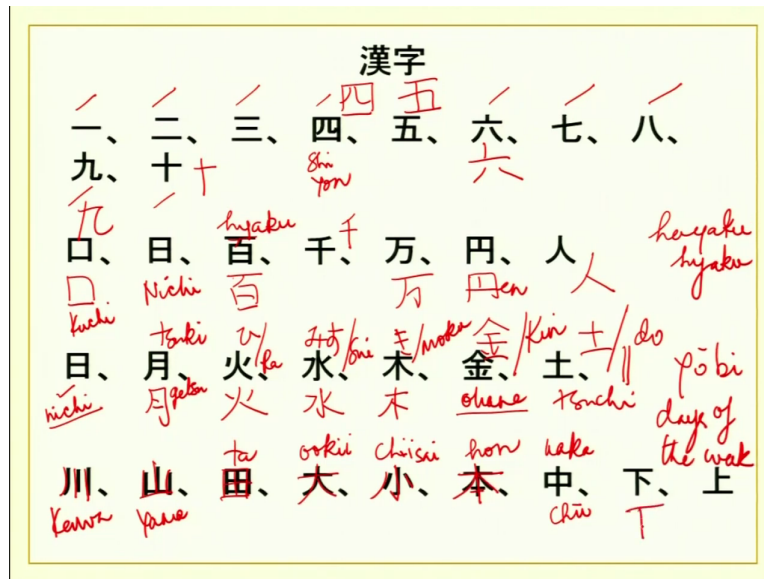 漢字
四 五
一、 二、 三、 四、 五、 六、 七、 八、
九、 十 十 Shi 六
Yon
九 hyaku 千
口、 日、 百、 千、 万、 円、 人 hayaku
hyaku
口 Nichi 百 万 円en 人
Kuchi
tsuki ひ/ka みず/sui き/moku 金/Kin 土/do
日、 月、 火、 水、 木、 金、 土、 yōbi
nichi 月 getsu 火 水 木 okane tsuchi days of
the weak
ta ookii Chiisai hon naka
川、 山、 田、 大、 小、 本、 中、 下、 上
Kawa Yama chū 下